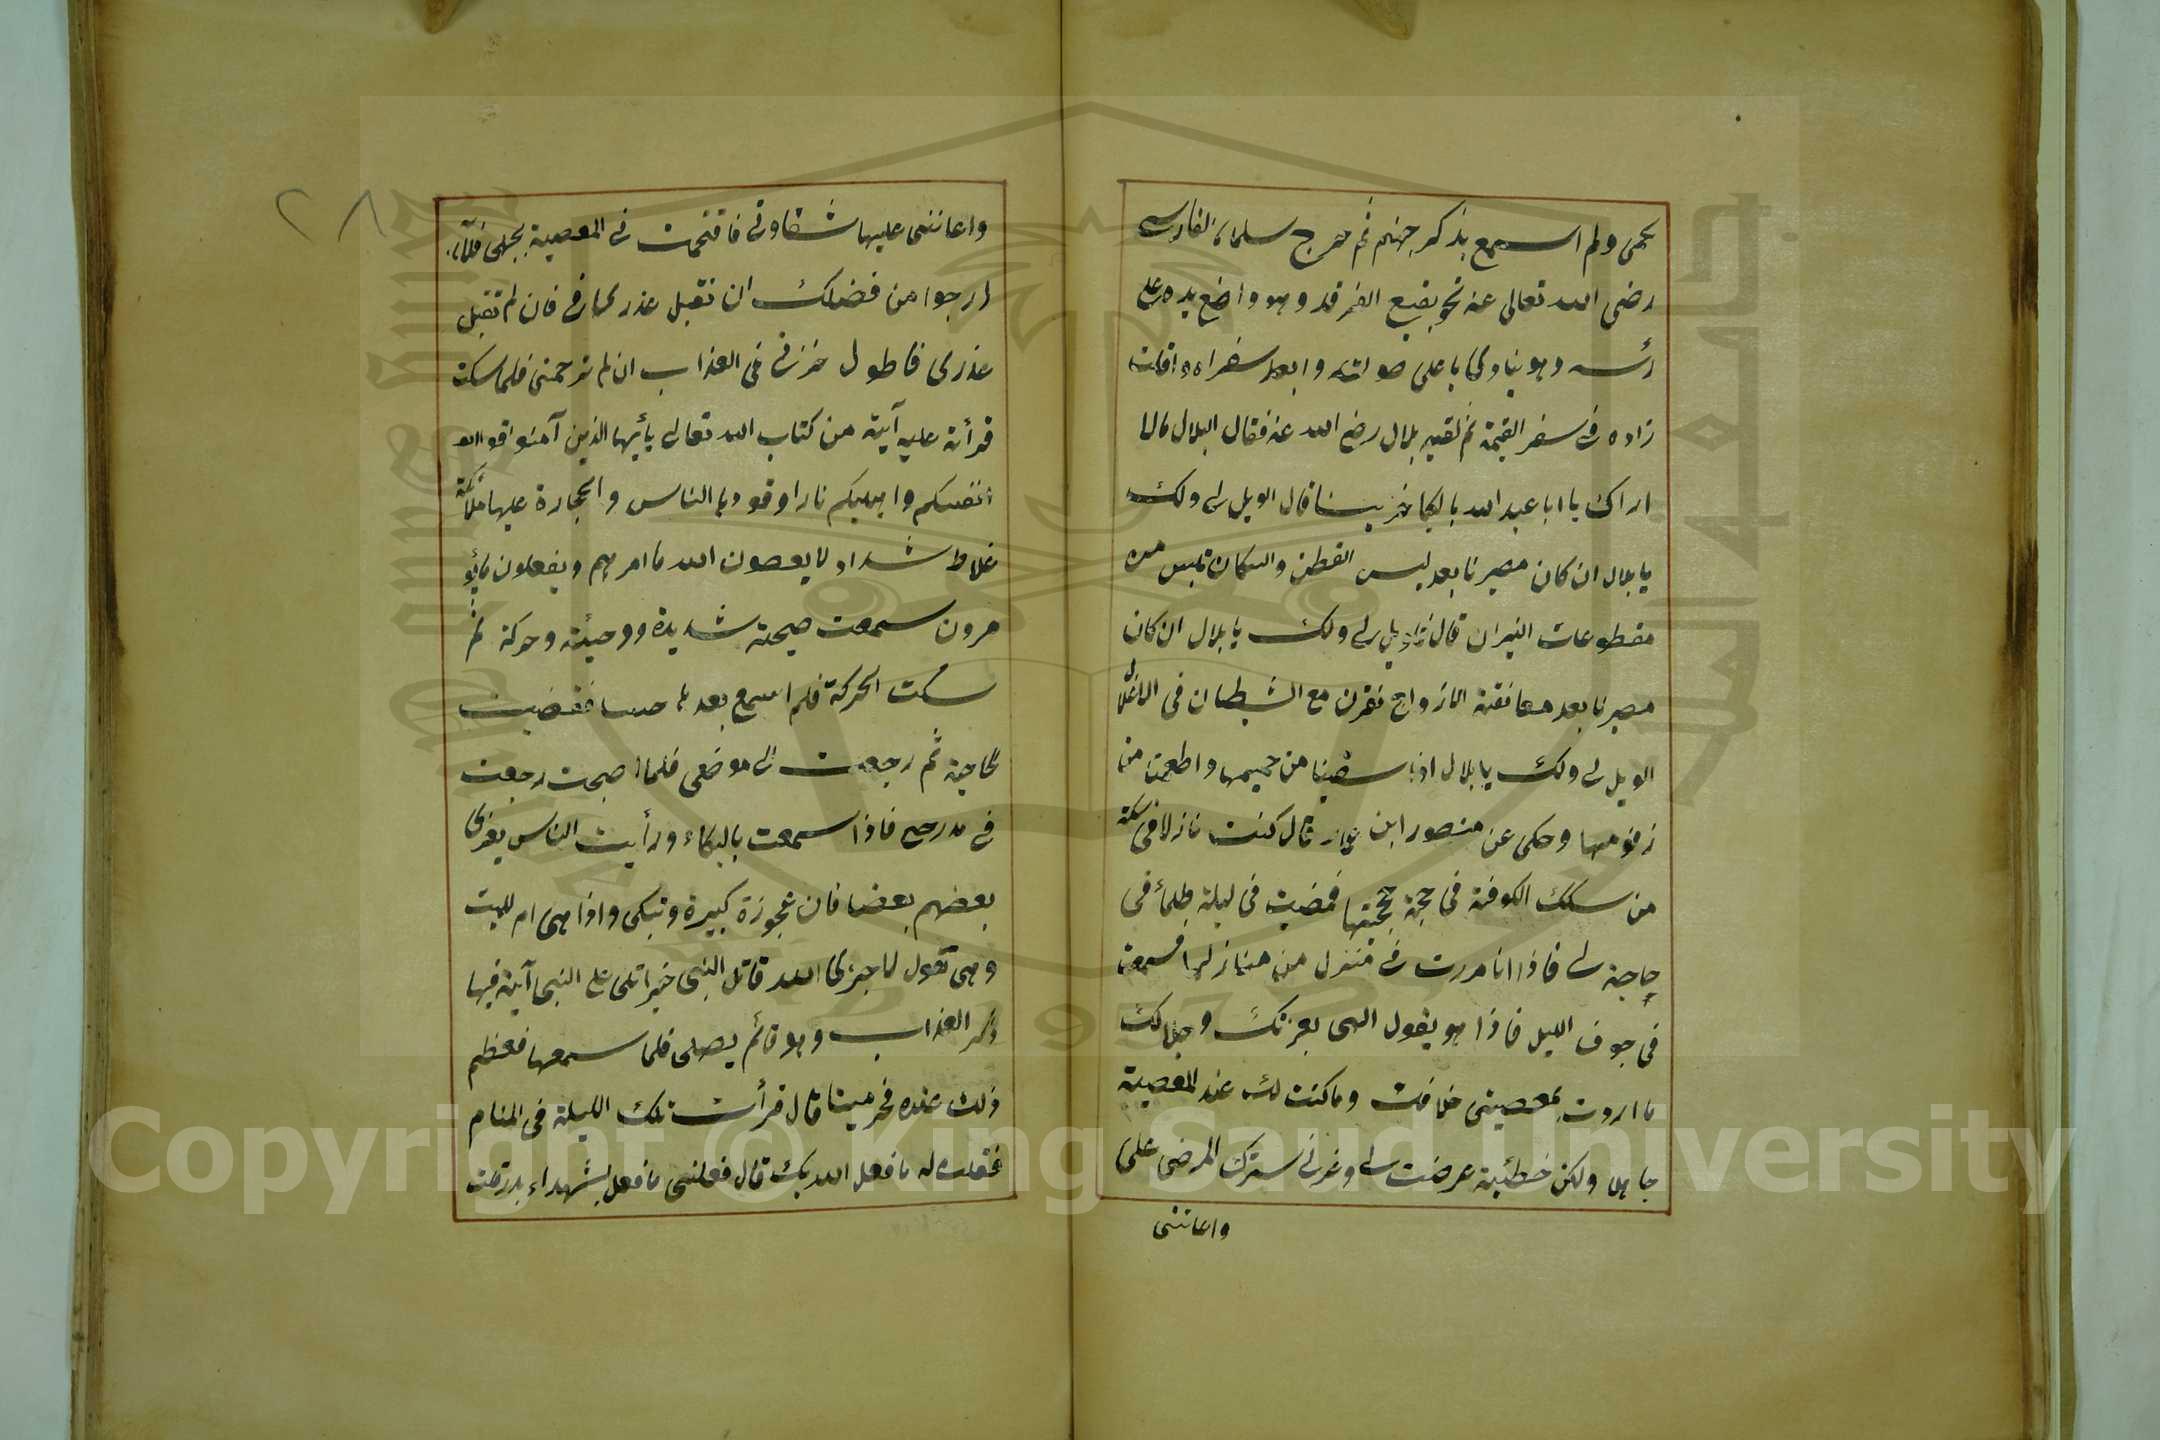 لحمى ولم اسمع بذكر جهنم ثم خرج سلمان الفارسى
رضى الله تعالى عنه نحو بقيع الغرقد وهو واضع يده على
رأسه وهو ينادى باعلى صوته وابعد سفراه واقلت
زاده فى سفر القيمة ثم لقيه بلال رضى الله عنه فقال البلال مالى
اراك يا ابا عبد الله باكيا حزينا قال الويل لى ولك
يا بلال ان كان مصيرنا بعد لبس القطن والكتان نلبس من
مقطوعات النيران قال الويل لى ولك يا بلال ان كان
مصيرنا بعد معانقة الازواج نقرن مع الشيطان فى الاغلال
الويل لى ولك يا بلال اذا سقينا من حميمها واطعمنا من
زقومها وحكى عن منصور ابن عمار قال كنت نازلا فى سكة
من سكك الكوفة فى حجة حججتها فمضيت فى ليلة ظلمأ فى
حاجة لى فاذا انا مررت فى منزل من منازلها فسمعت
فى جوف الليل فاذا هو يقول الهى بعزتك وجلالك
ما اردت بمعصيتى خلافك وما كنت لك عند المعصية
جاهلا ولكن خطيئة عرضت لى وغرنى سترك المرضى على
واعانتنى
واعانتنى عليها شقاوتى فاقتحمت فى المعصية بجهلى فالآن
ارجوا من فضلك ان تقبل عذرى فان لم تقبل
عذرى فاطول حزنى فى العذاب ان لم ترحمنى فلما سكت
قرأت عليه آية من كتاب الله تعالى يأيها الذين آمنوا قوا
انفسكم واهليكم نارا وقودها الناس والحجارة عليها ملائكة
غلاظ شداد لا يعصون الله ما امرهم ويفعلون ما يؤ
مرون سمعت صيحة شديدة ووحيئة وحركة ثم
سكت الحركة فلم اسمع بعدها حسا فقضيت
الحاجة ثم رجعت الى موضعى فلما اصبحت رجعت
فى مدرحى فاذا سمعت بالبكاء ورأيت الناس يعزى
بعضهم بعضا فان عجوزة كبيرة وتبكى واذا هى ام لميت
وهى تقول لا جزى الله قاتل ابنى خيرا تلى على ابنى آية فيها
ذكر العذاب وهو قائم يصلى فلما سمعها فعظم
ذلك عنده فخر ميتا قال فرأيت تلك الليلة فى المنام
فقلت له ما فعل الله بك قال فعلنى ما فعل بشهداء بدر قلت
٢٨
Copyright © King Saud University